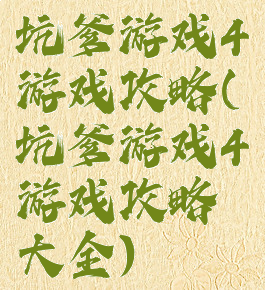 坑爹游戏4
游戏攻略(
坑爹游戏4
游戏攻略
大全)